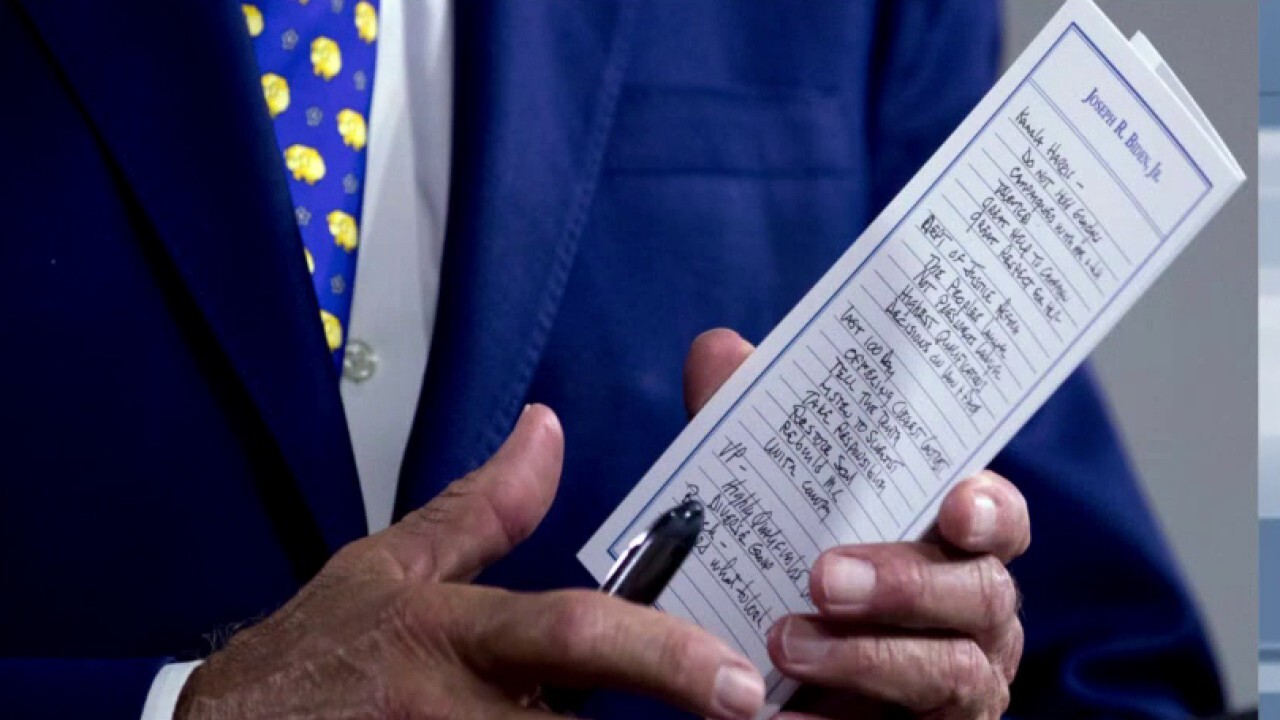 JOSEPH R. BIDEN, JR.
KAMALA HARRIS -
DO NOT HOLD GRUDGES
CAMPAIGNED WITH ME & JILL
TALENTED
GREAT HELP TO CAMPAIGN
GREAT RESPECT FOR HER
DEPT OF JUSTICE
THE PEOPLES LAWYER
NOT PRESIDENTS LAWYER
HIGHEST QUALIFICATIONS
DECISIONS ON LAW & FACT
LAST 100 DAY
OFFERING CLEAR
TELL THE TRUTH
LISTEN TO SCIENTIST
TAKE RESPONSIBILITY
RESTORE SOUL
REBUILD M.C.
UNITE COUNTRY
VP -
Highly QUALIFIED
DIVERSE GROUP
- what to